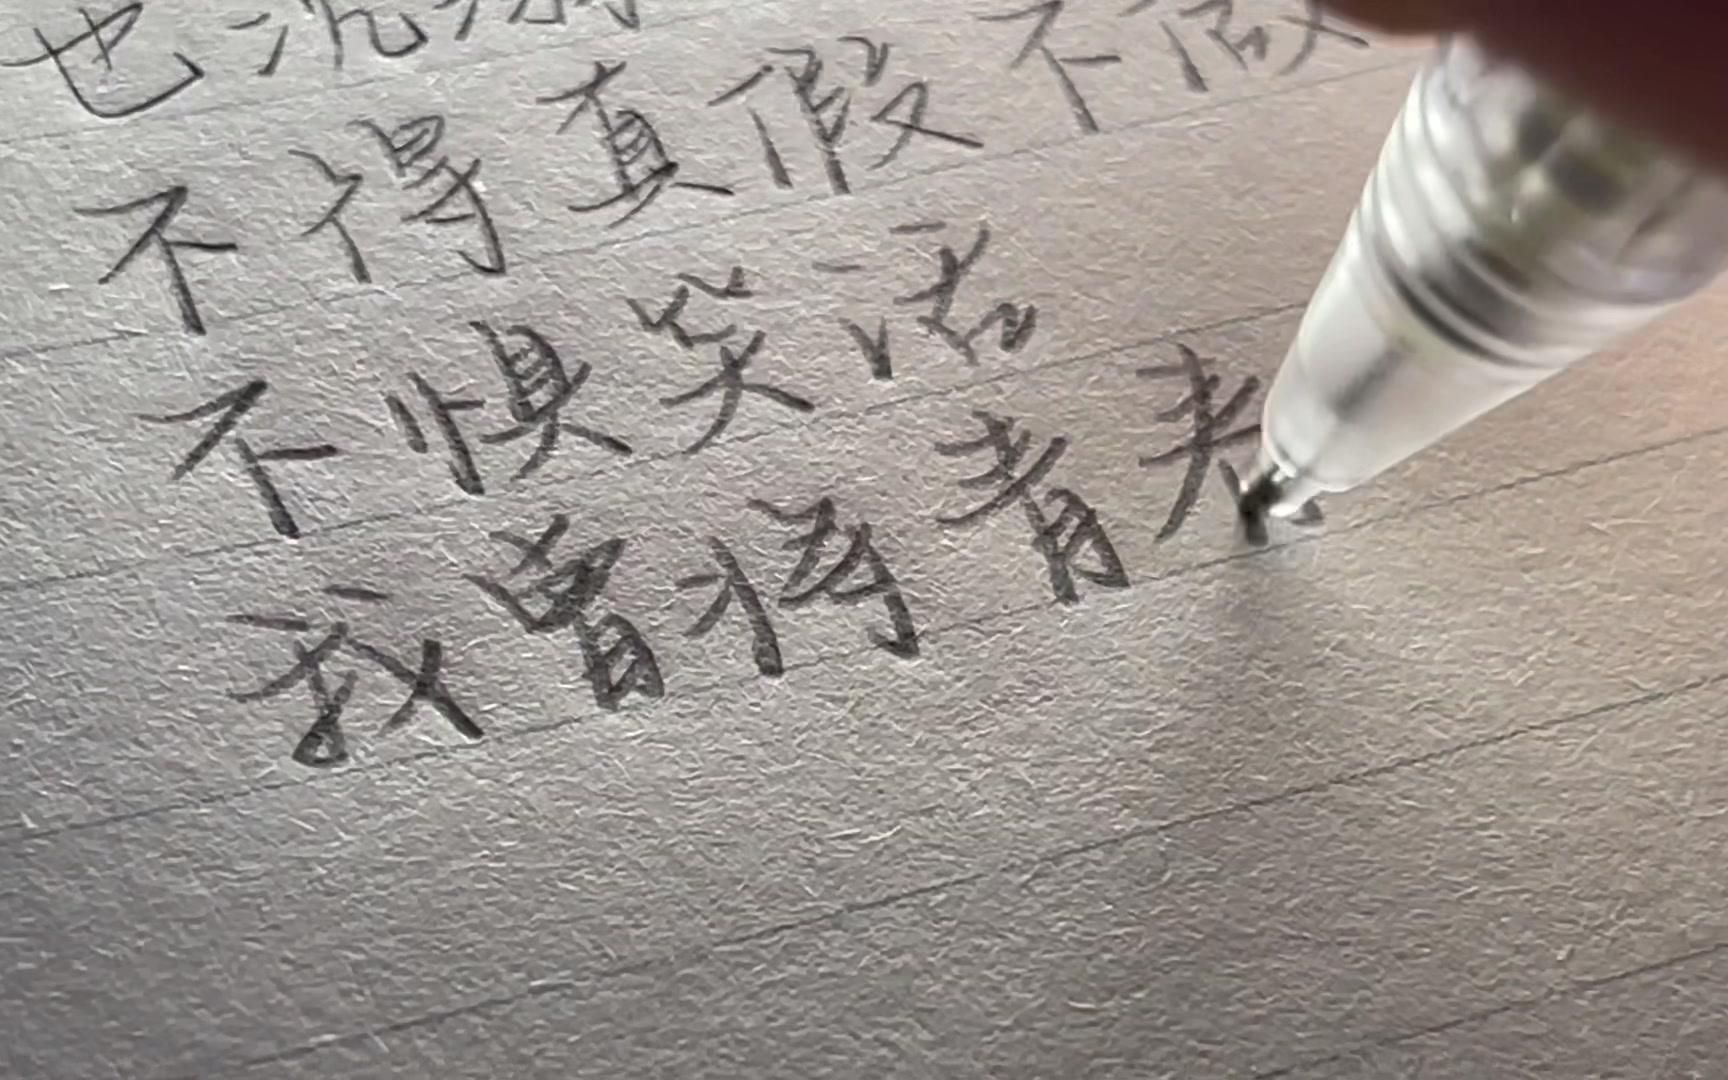 也沉溺
不得真假不做
不惧笑话
我曾将青春